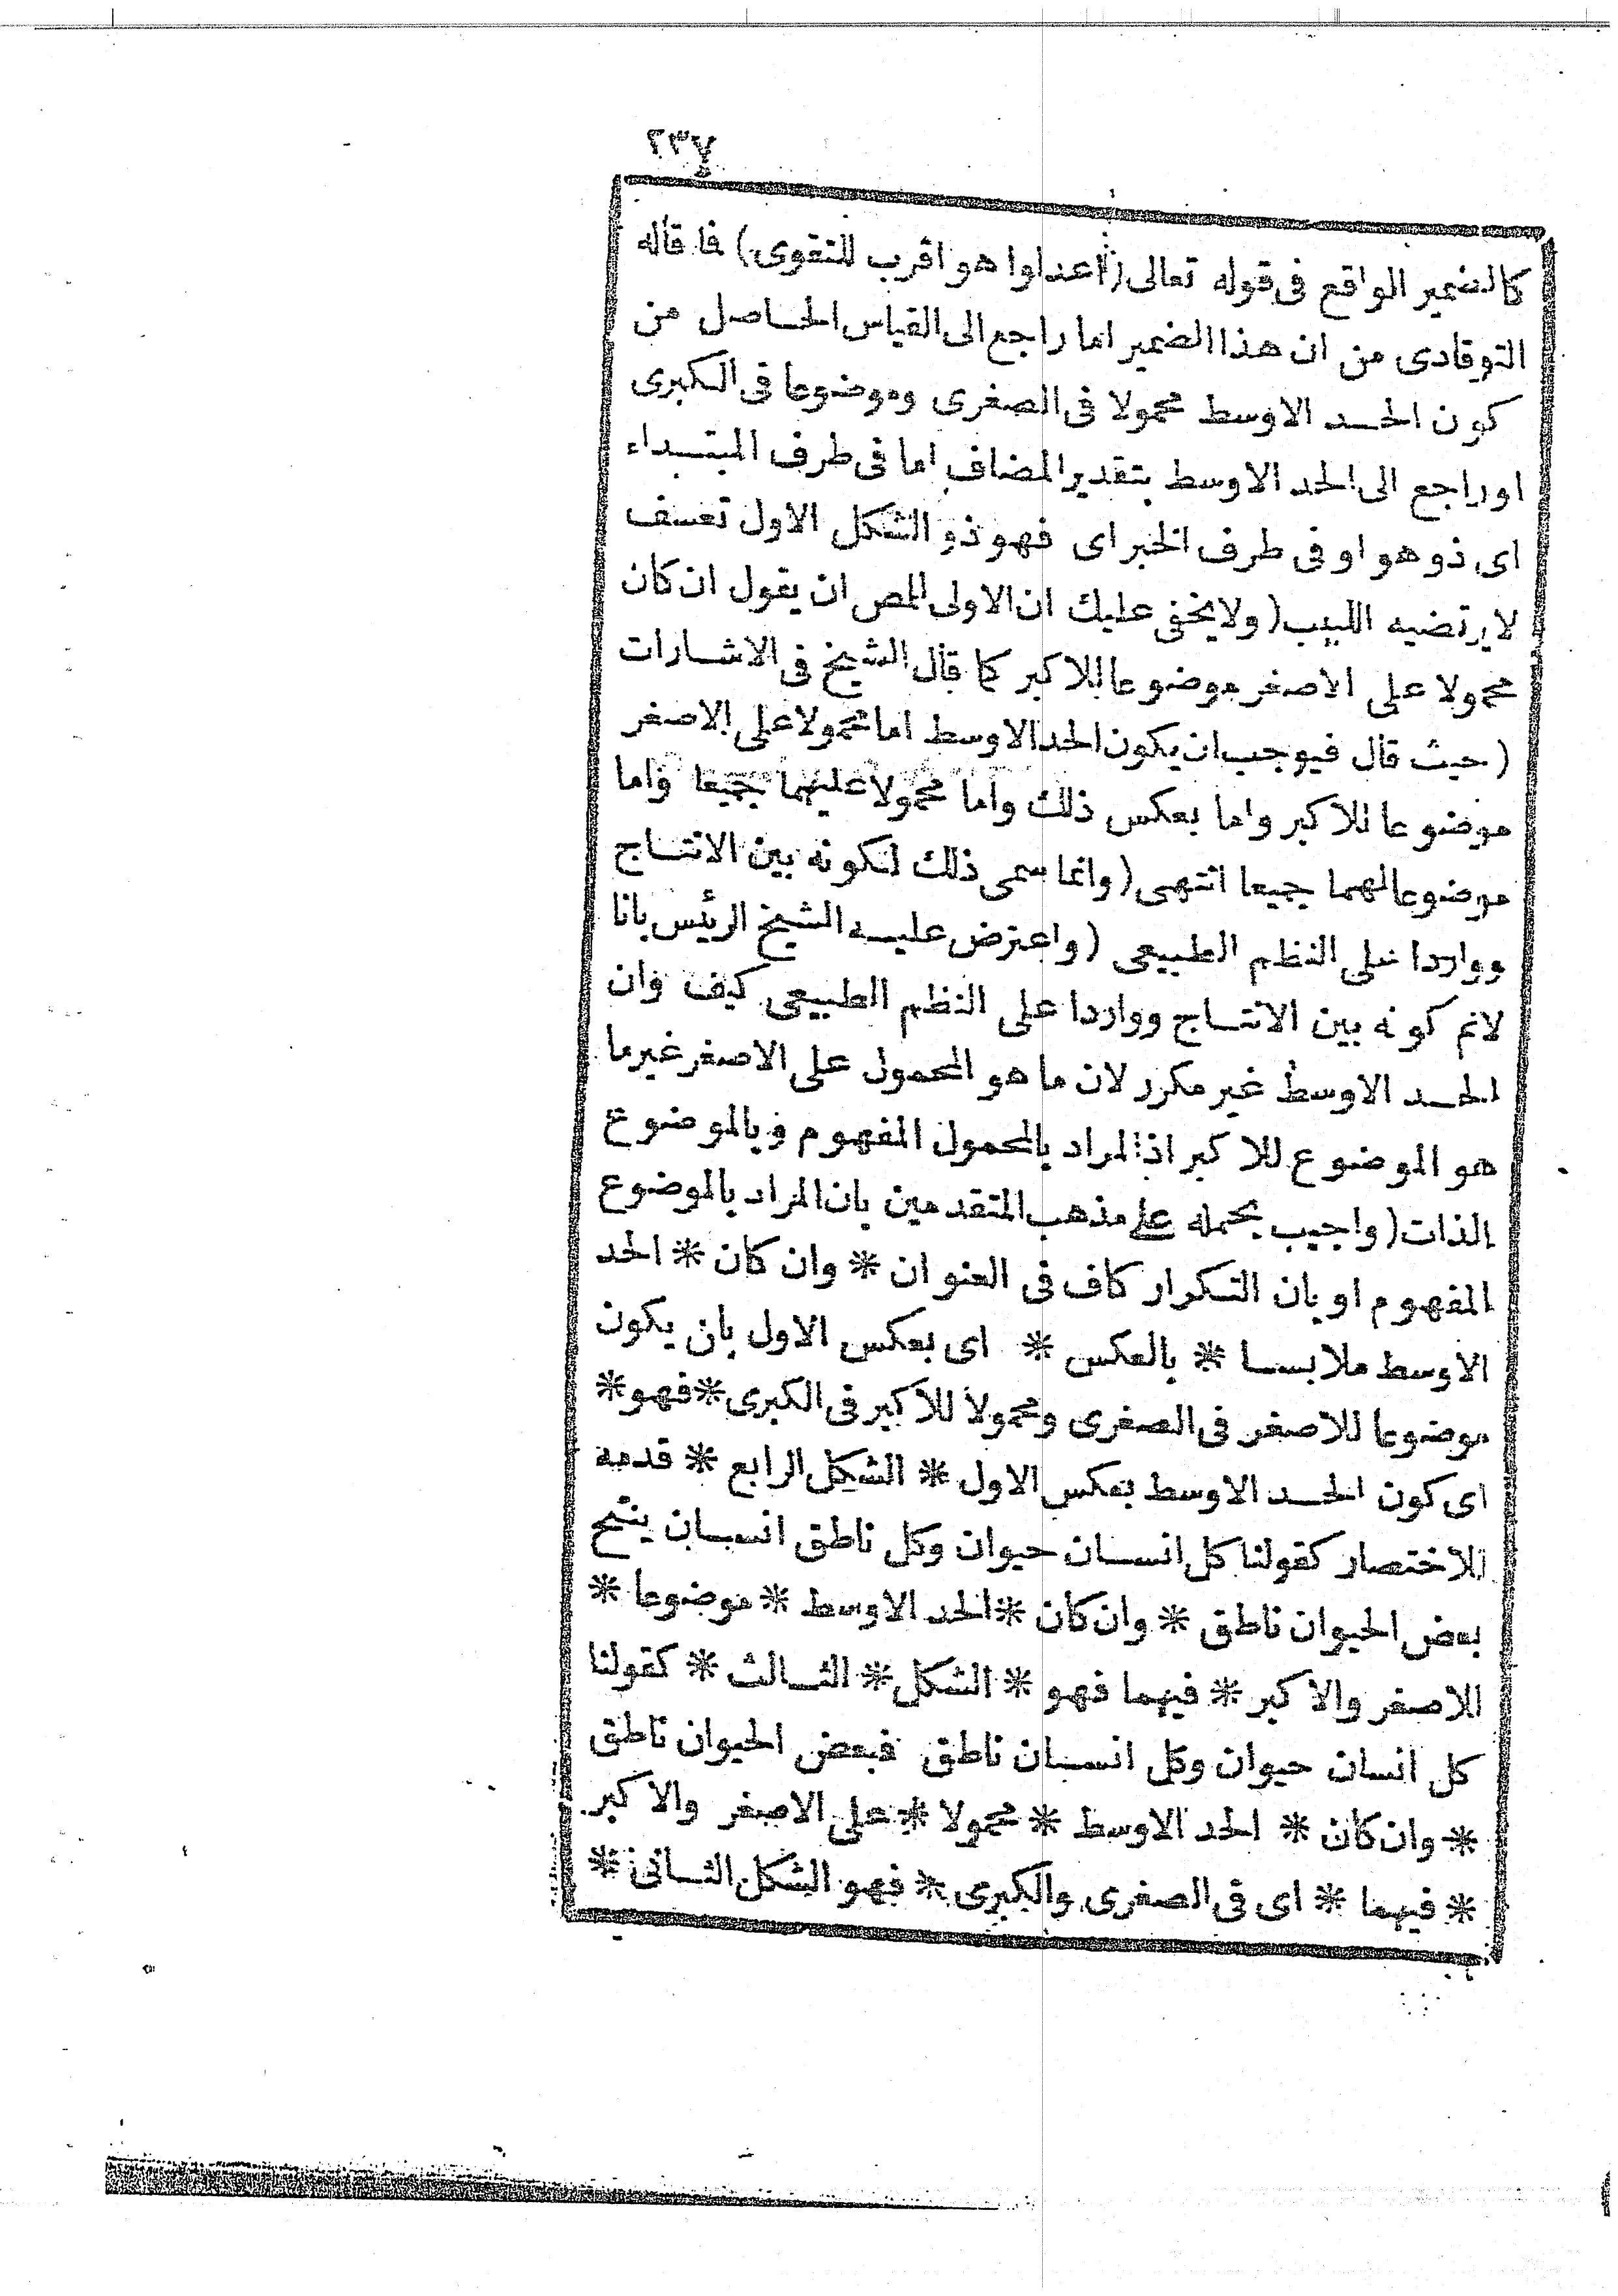 ٢٣٧
كالضمير الواقع فى قوله تعالى (اعدلوا هو اقرب للتقوى) فما قاله
التوقادى من ان هذا الضمير اما راجع الى القياس الحاصل من
كون الحد الاوسط محمولا فى الصغرى وموضوعا فى الكبرى
اوراجع الى الحد الاوسط بتقدير المضاف اما فى طرف المبتداء
اى ذو هو او فى طرف الخبر اى فهو ذو الشكل الاول تعسف
لا يرتضيه اللبيب (ولا يخفى عليك ان الاولى للمص ان يقول ان كان
محمولا على الاصغر موضوعا للاكبر كما قال الشيخ فى الاشارات
(حيث قال فيوجب ان يكون الحد الاوسط اما محمولا على الاصغر
موضوعا للاكبر واما بعكس ذلك واما محمولا عليهما جميعا واما
موضوعا لهما جميعا انتهى (وانما سمى ذلك لكونه بين الانتاج
وواردا على النظم الطبيعى (واعترض عليه الشيخ الرئيس بانا
لانم كونه بين الانتاج وواردا على النظم الطبيعى كيف وان
الحد الاوسط غير مكرر لان ما هو المحمول على الاصغر غير ما
هو الموضوع للاكبر اذ المراد بالمحمول المفهوم وبالموضوع
الذات (واجيب بحمله على مذهب المتقدمين بان المراد بالموضوع
المفهوم او بان التكرار كاف فى العنوان * وان كان * الحد
الاوسط ملابسا * بالعكس * اى بعكس الاول بان يكون
موضوعا للاصغر فى الصغرى ومحمولا للاكبر فى الكبرى * فهو *
اى كون الحد الاوسط بعكس الاول * الشكل الرابع * قدمه
للاختصار كقولنا كل انسان حيوان وكل ناطق انسان ينتج
بعض الحيوان ناطق * وان كان * الحد الاوسط * موضوعا *
للاصغر والاكبر * فيهما فهو * الشكل * الثالث * كقولنا
كل انسان حيوان وكل انسان ناطق فبعض الحيوان ناطق
* وان كان * الحد الاوسط * محمولا * على الاصغر والاكبر
* فيهما * اى فى الصغرى والكبرى * فهو الشكل الثانى *